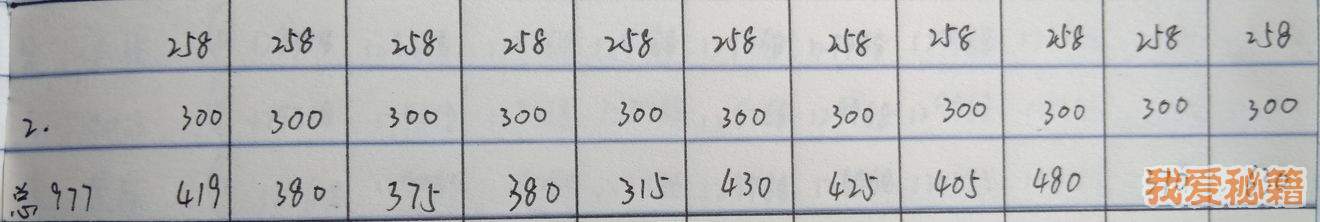 258 258 258 258 258 258 258 258 258 258 258
2. 300 300 300 300 300 300 300 300 300 300 300
总 977 419 380 375 380 315 430 425 405 480
我爱秘籍